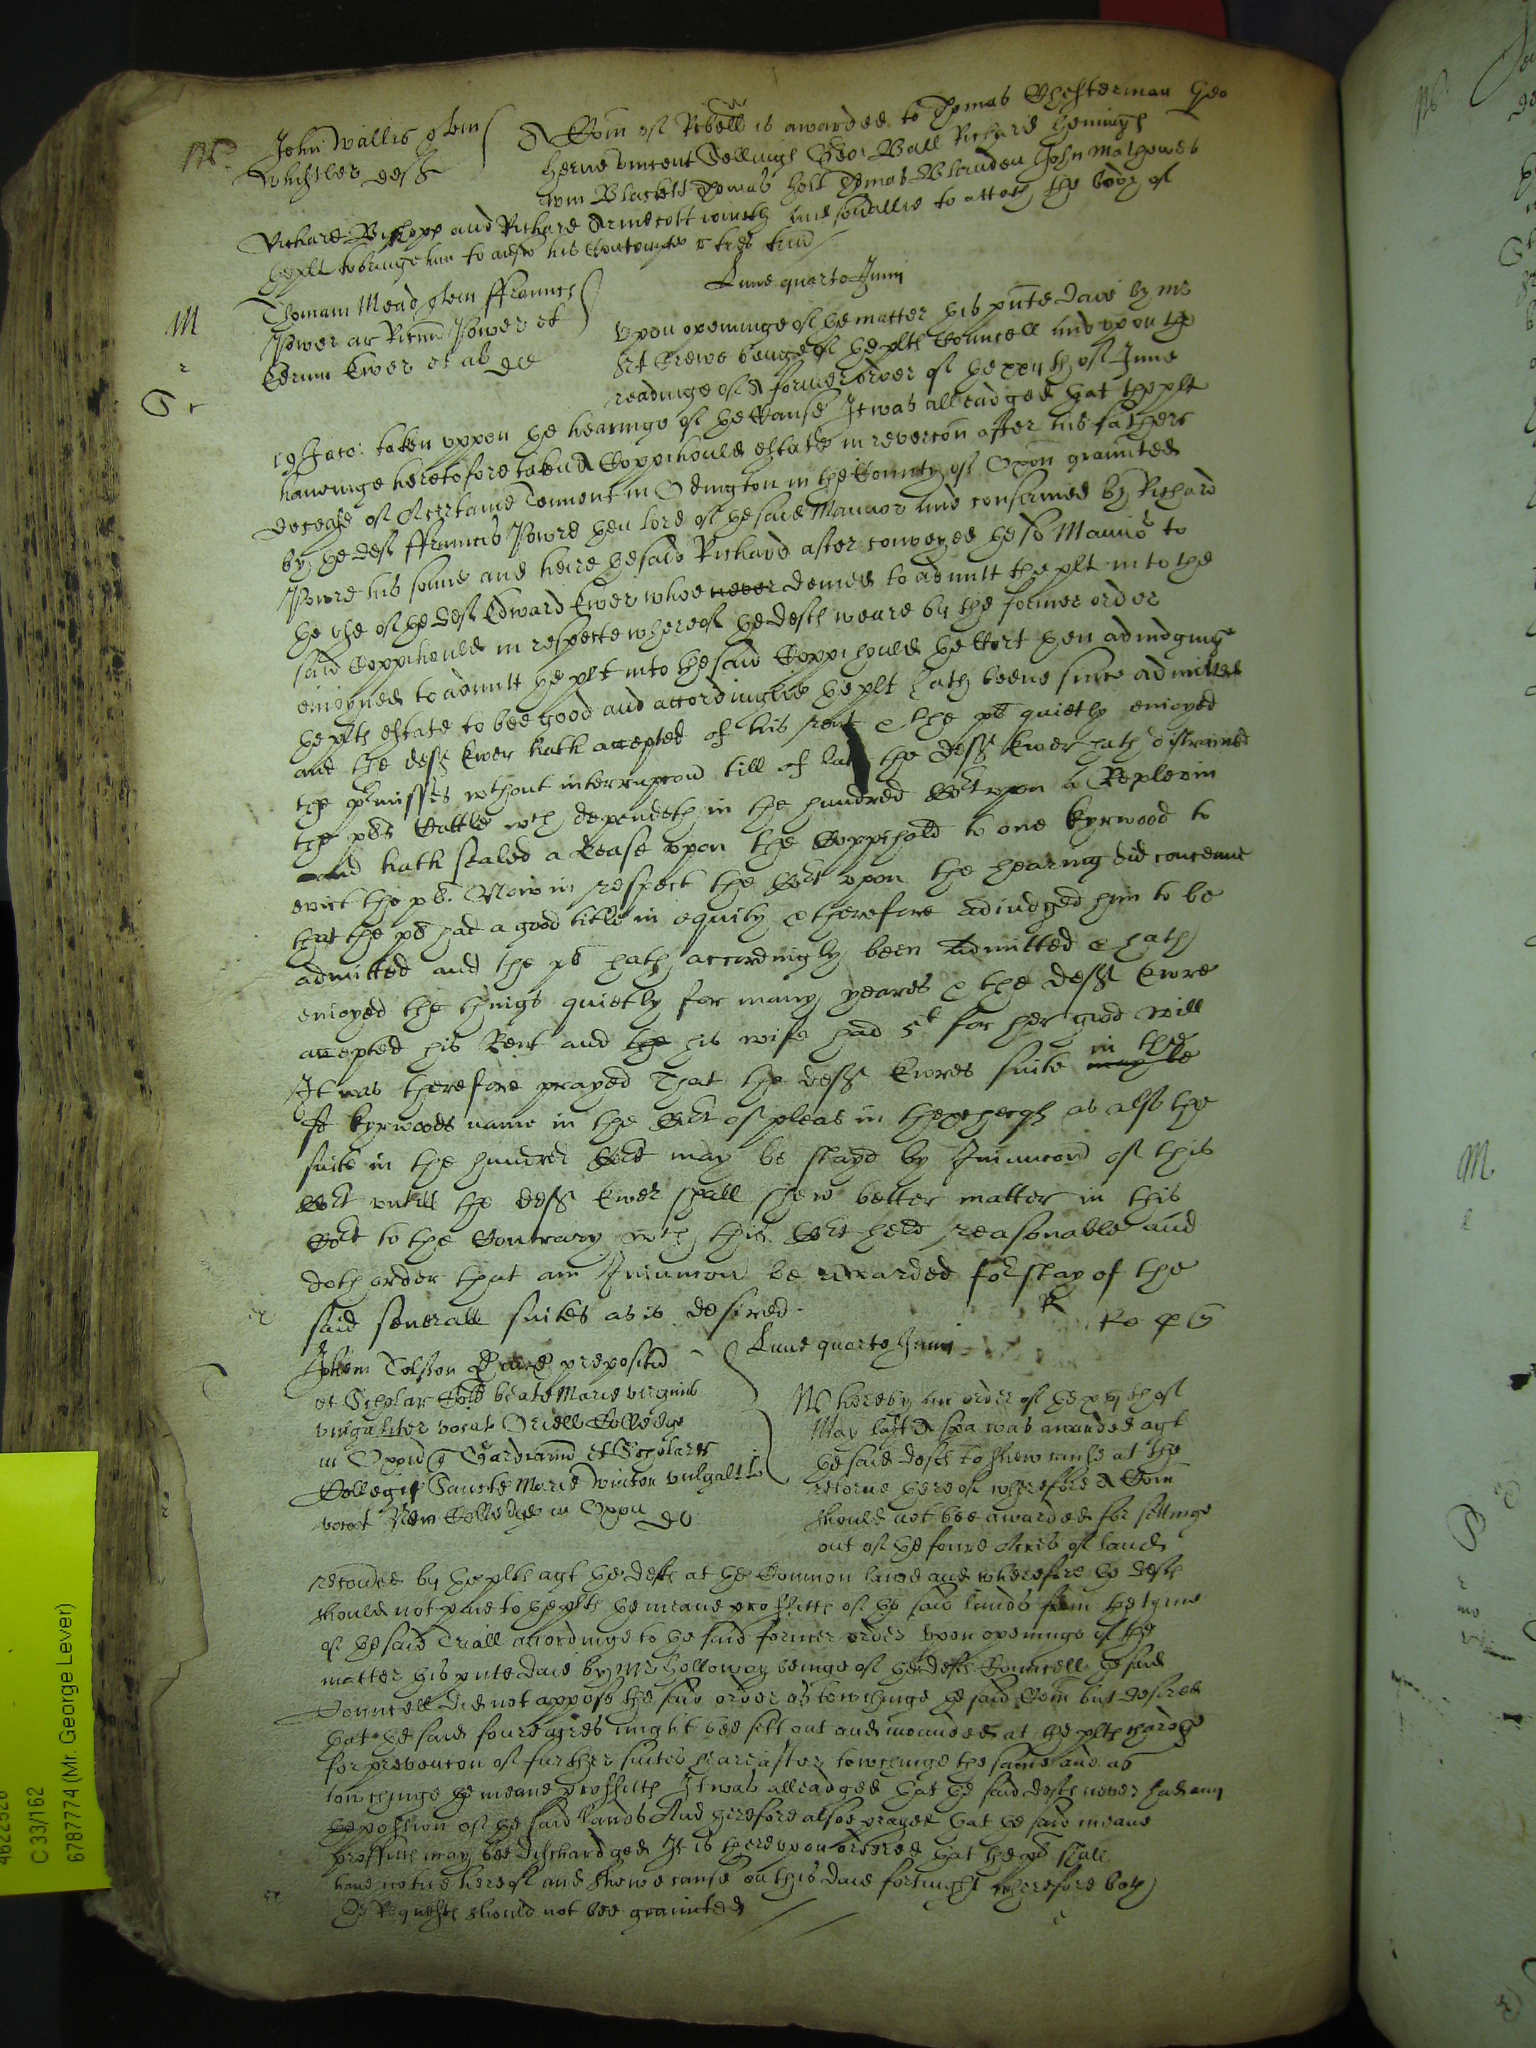 John Wallis quer
def
A Com of Rebell is awarded to Thomas Chesterman Geo
herne Vincent Geo: Ball Richard
Wm Blackett Thomas holt Thomas Blunden John Mathewes
Richard Bishopp and Richard ioyntly and seuallie to attach the body of
the plt to bringe him to answ his Contempte
M
Thomam Mead quer ffranncs
Power ar Ricum Power et
Edrum Ewer et al def
Lune quarto Junij
Vpon openinge of the matter this pnte daie by Mr
beinge of the plts Councell and vpon the
readinge of A former order of the of June
19 Jaco: taken vppon the hearinge of the Cause It was alleadged that the plt
haueinge heretofore taken A Coppihould estate in revercon after his fathers
decease of A certaine Tenment in Odington in the County of Oxon graunted
by the deft ffrancis Powre then lord of the said Mannor and confirmed by Richard
Powre his sonne and heire the said Richard after conveyed the sd Mannor to
the vse of the deft Edward Ewer whoe never denied to admitt the plt into the
said Coppihould in respecte whereof the defts weare by the former order
enioyned to admitt the plt into the said Coppihould the Cort then adiudginge
the plts estate to bee good and accordinglie the plt hath beene since admitted
and the deft Ewer hath accepted of his rent & the pl quietly enioyed
the pmisses wthout interrupcon till of late the deft Ewer hath distrained
the pls Cattle wch dependeth in the hundred Cort vpon a Replevin
and hath sealed a Lease vpon the Coppihold to one Kyrwood to
evict the pl. Now in respect the Cort vpon the hearing did conceaue
that the pl had a good title in equity & therefore adiudged him to be
admitted and the pl hath accordingly been admitted & hath
enioyed the things quietly for many yeares & the deft Ewre
accepted his Rent and the his wife had 5l for her good will
It was therefore prayed That the deft Ewres suite in the
sd Kyrwoods name in the Cort of pleas in the Exchequer as also the
suite in the hundred Cort may be stayd by Iniuncon of this
Cort vntill the deft Ewer shall shew better matter in this
Cort to the Contrary wch this Cort held reasonable and
doth order that an Iniuncon be awarded for stay of the
said seuerall suites as is desired.
ex
Lune quarto Junij
Tolson preposit
et Scholar Coll beate Marie virginis
vulgaliter vocat Oriell Colledge
in Oxon qr Gardianum et Scholares
Collegij Sancte Marie Winton vulgalit
vocat New Colledge in Oxon def
Whereby an order of the xvjth of
May last A spa was awarded agt
the said defts to shew cause at the
retorne thereof wherefore A Com
should not bee awarded for settinge
out of the foure Acres of land
recoued by the plts agt the defts at the Common lawe and wherefore the defts
should not paie to the plts the meane proffitts of the said lands from the tyme
of the said Triall accordinge to the said former order Vpon openinge of the
matter this pnte daie by Mr Holloway beinge of the defts Councell the said
Councell did not oppose the said order as towchinge the said Com but desired
that the said foure acres might bee sett out and mounded at the plts chardge
for prevencon of further suites hereafter towchinge the same and as
towchinge the meane proffitts It was alleadged that the said defts never had any
the possion of the said lands And therefore alsoe prayed that the said meane
proffitts may bee dischardged It is therevpon ordered that the pl shall
haue notice hereof and shewe cause on this daie fortnight wherefore both
the Requests should not bee graunted
ex
C 33/162
6787774 (Mr. George Lever)
M